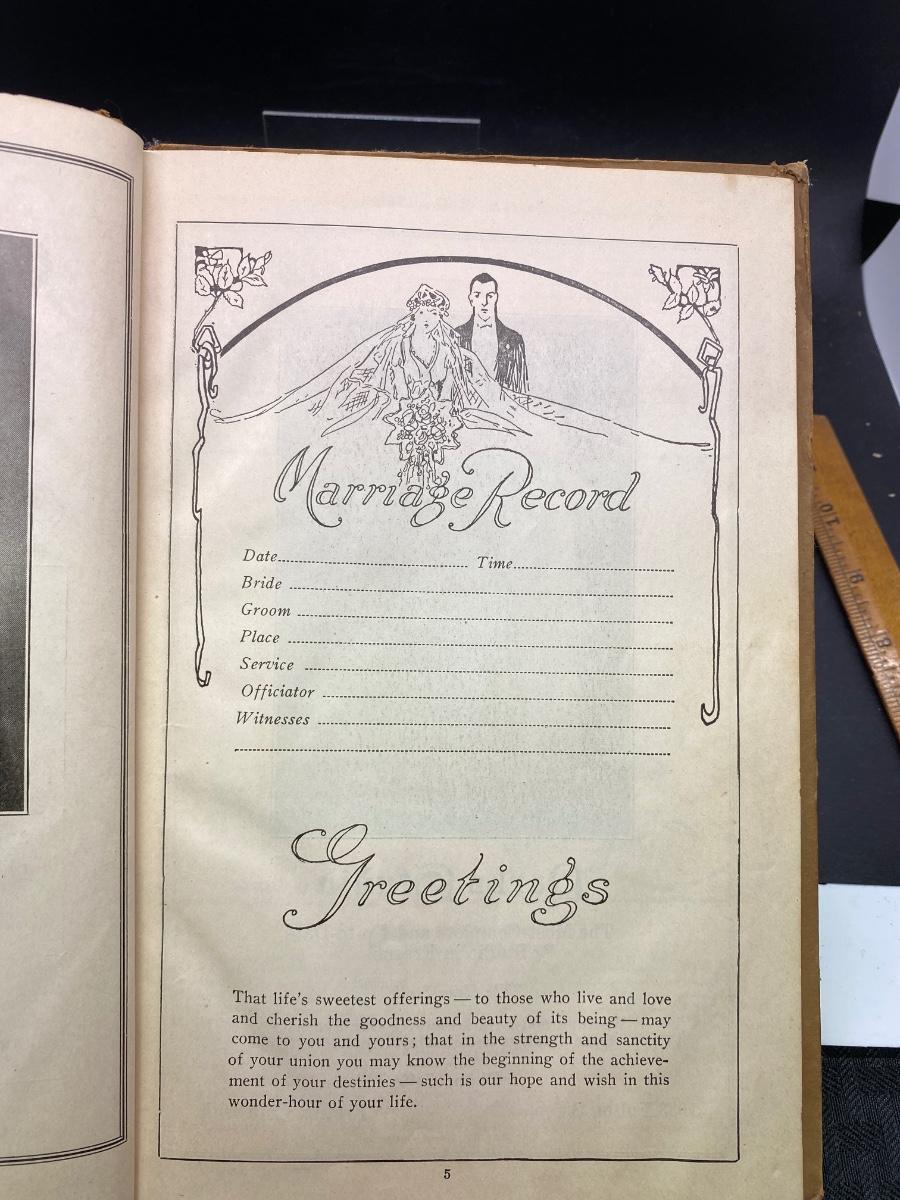 Marriage Record
Date Time
Bride
Groom
Place
Service
Officiator
Witnesses
Greetings
That life's sweetest offerings — to those who live and love
and cherish the goodness and beauty of its being — may
come to you and yours; that in the strength and sanctity
of your union you may know the beginning of the achieve-
ment of your destinies — such is our hope and wish in this
wonder-hour of your life.
5
10
9
8